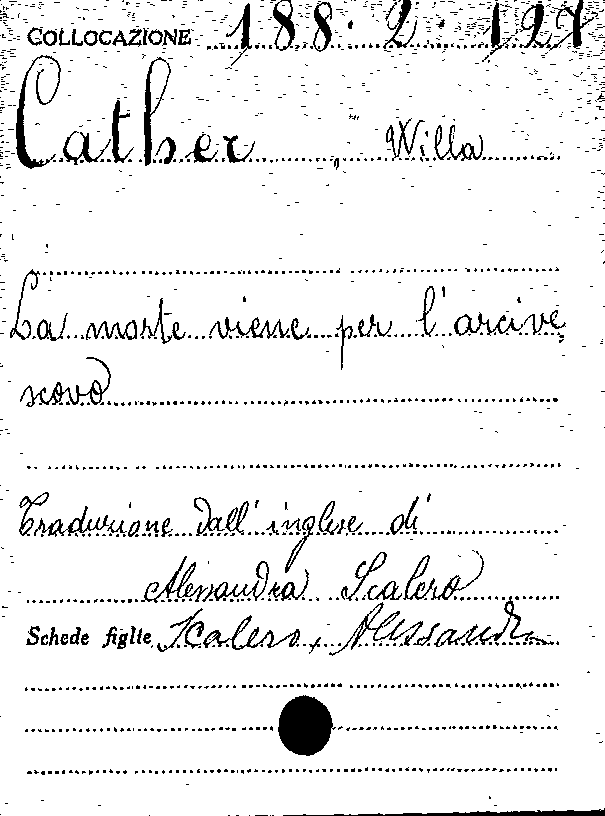 COLLOCAZIONE 188.2.127
Cather, Willa
La morte viene per l'arcive
scovo
Traduzione dall'inglese di
Alessandra Scalero
Schede figlie Scalero, Alessandra